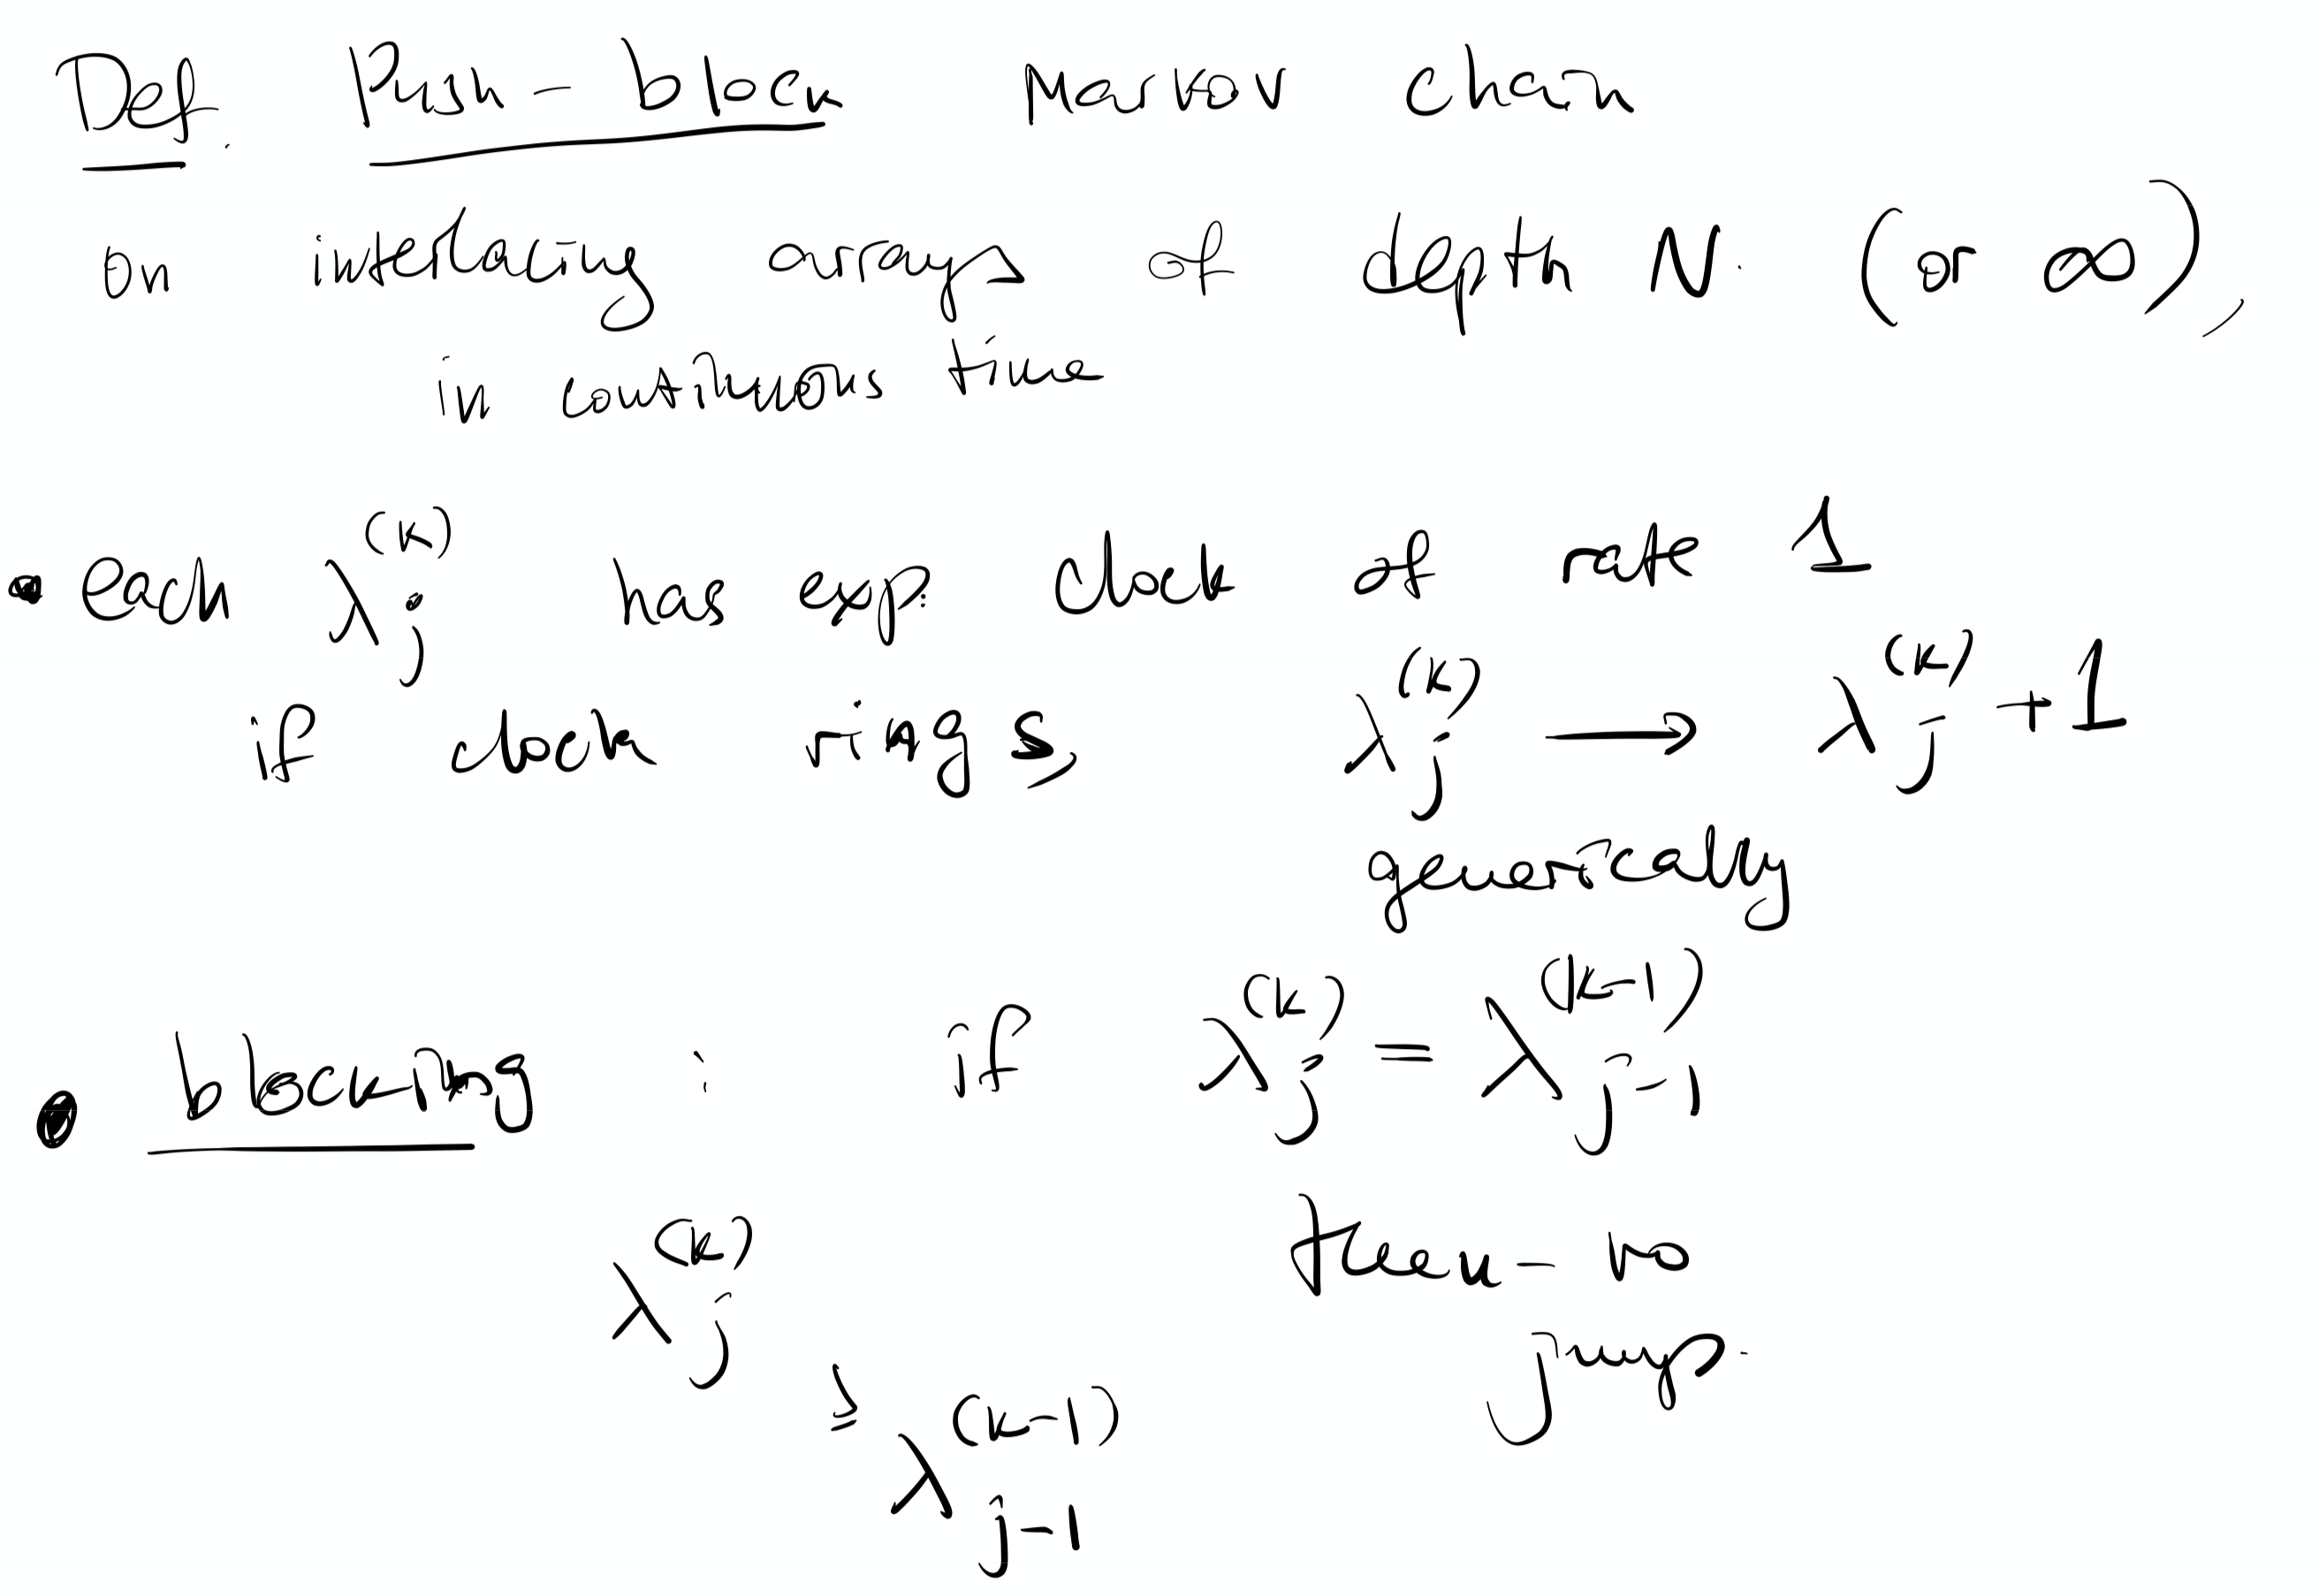 Def. Push-block Markov chain
on interlacing arrays of depth N. (or ∞),
in continuous time
• each λ_j^(k) has exp. clock of rate 1
if clock rings, λ_j^(k) → λ_j^(k) + 1
generically
• blocking : if λ_j^(k) = λ_{j-1}^(k-1)
then - no
jump.
λ_j^(k)
≤
λ_{j-1}^(k-1)